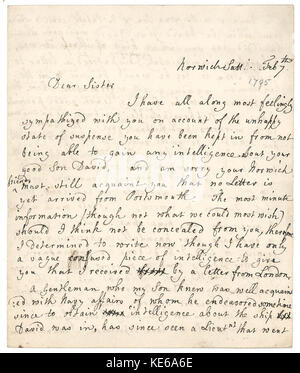 Norwich Satt. Feb 7th
1795
Dear Sister
I have all along most feelingly
sympathized with you on account of the unhappy
state of suspense you have been kept in from not
being able to gain any intelligence about your
good Son David, and am sorry your Norwich
friends
must still acquaint you that no Letter is
yet arrived from Portsmouth. The most minute
information (though not what we could most wish)
should I think not be concealed from you, therefore
I determined to write now though I have only
a vague piece of intelligence to give
you that I received by a letter from London,
a Gentleman who my Son knew was well acquain
ed with Navy affairs of whom he endeavored sometime
since to obtain intelligence about the ship
David was in, has since seen a Lieut.nt that went
alamy
KE6A6E